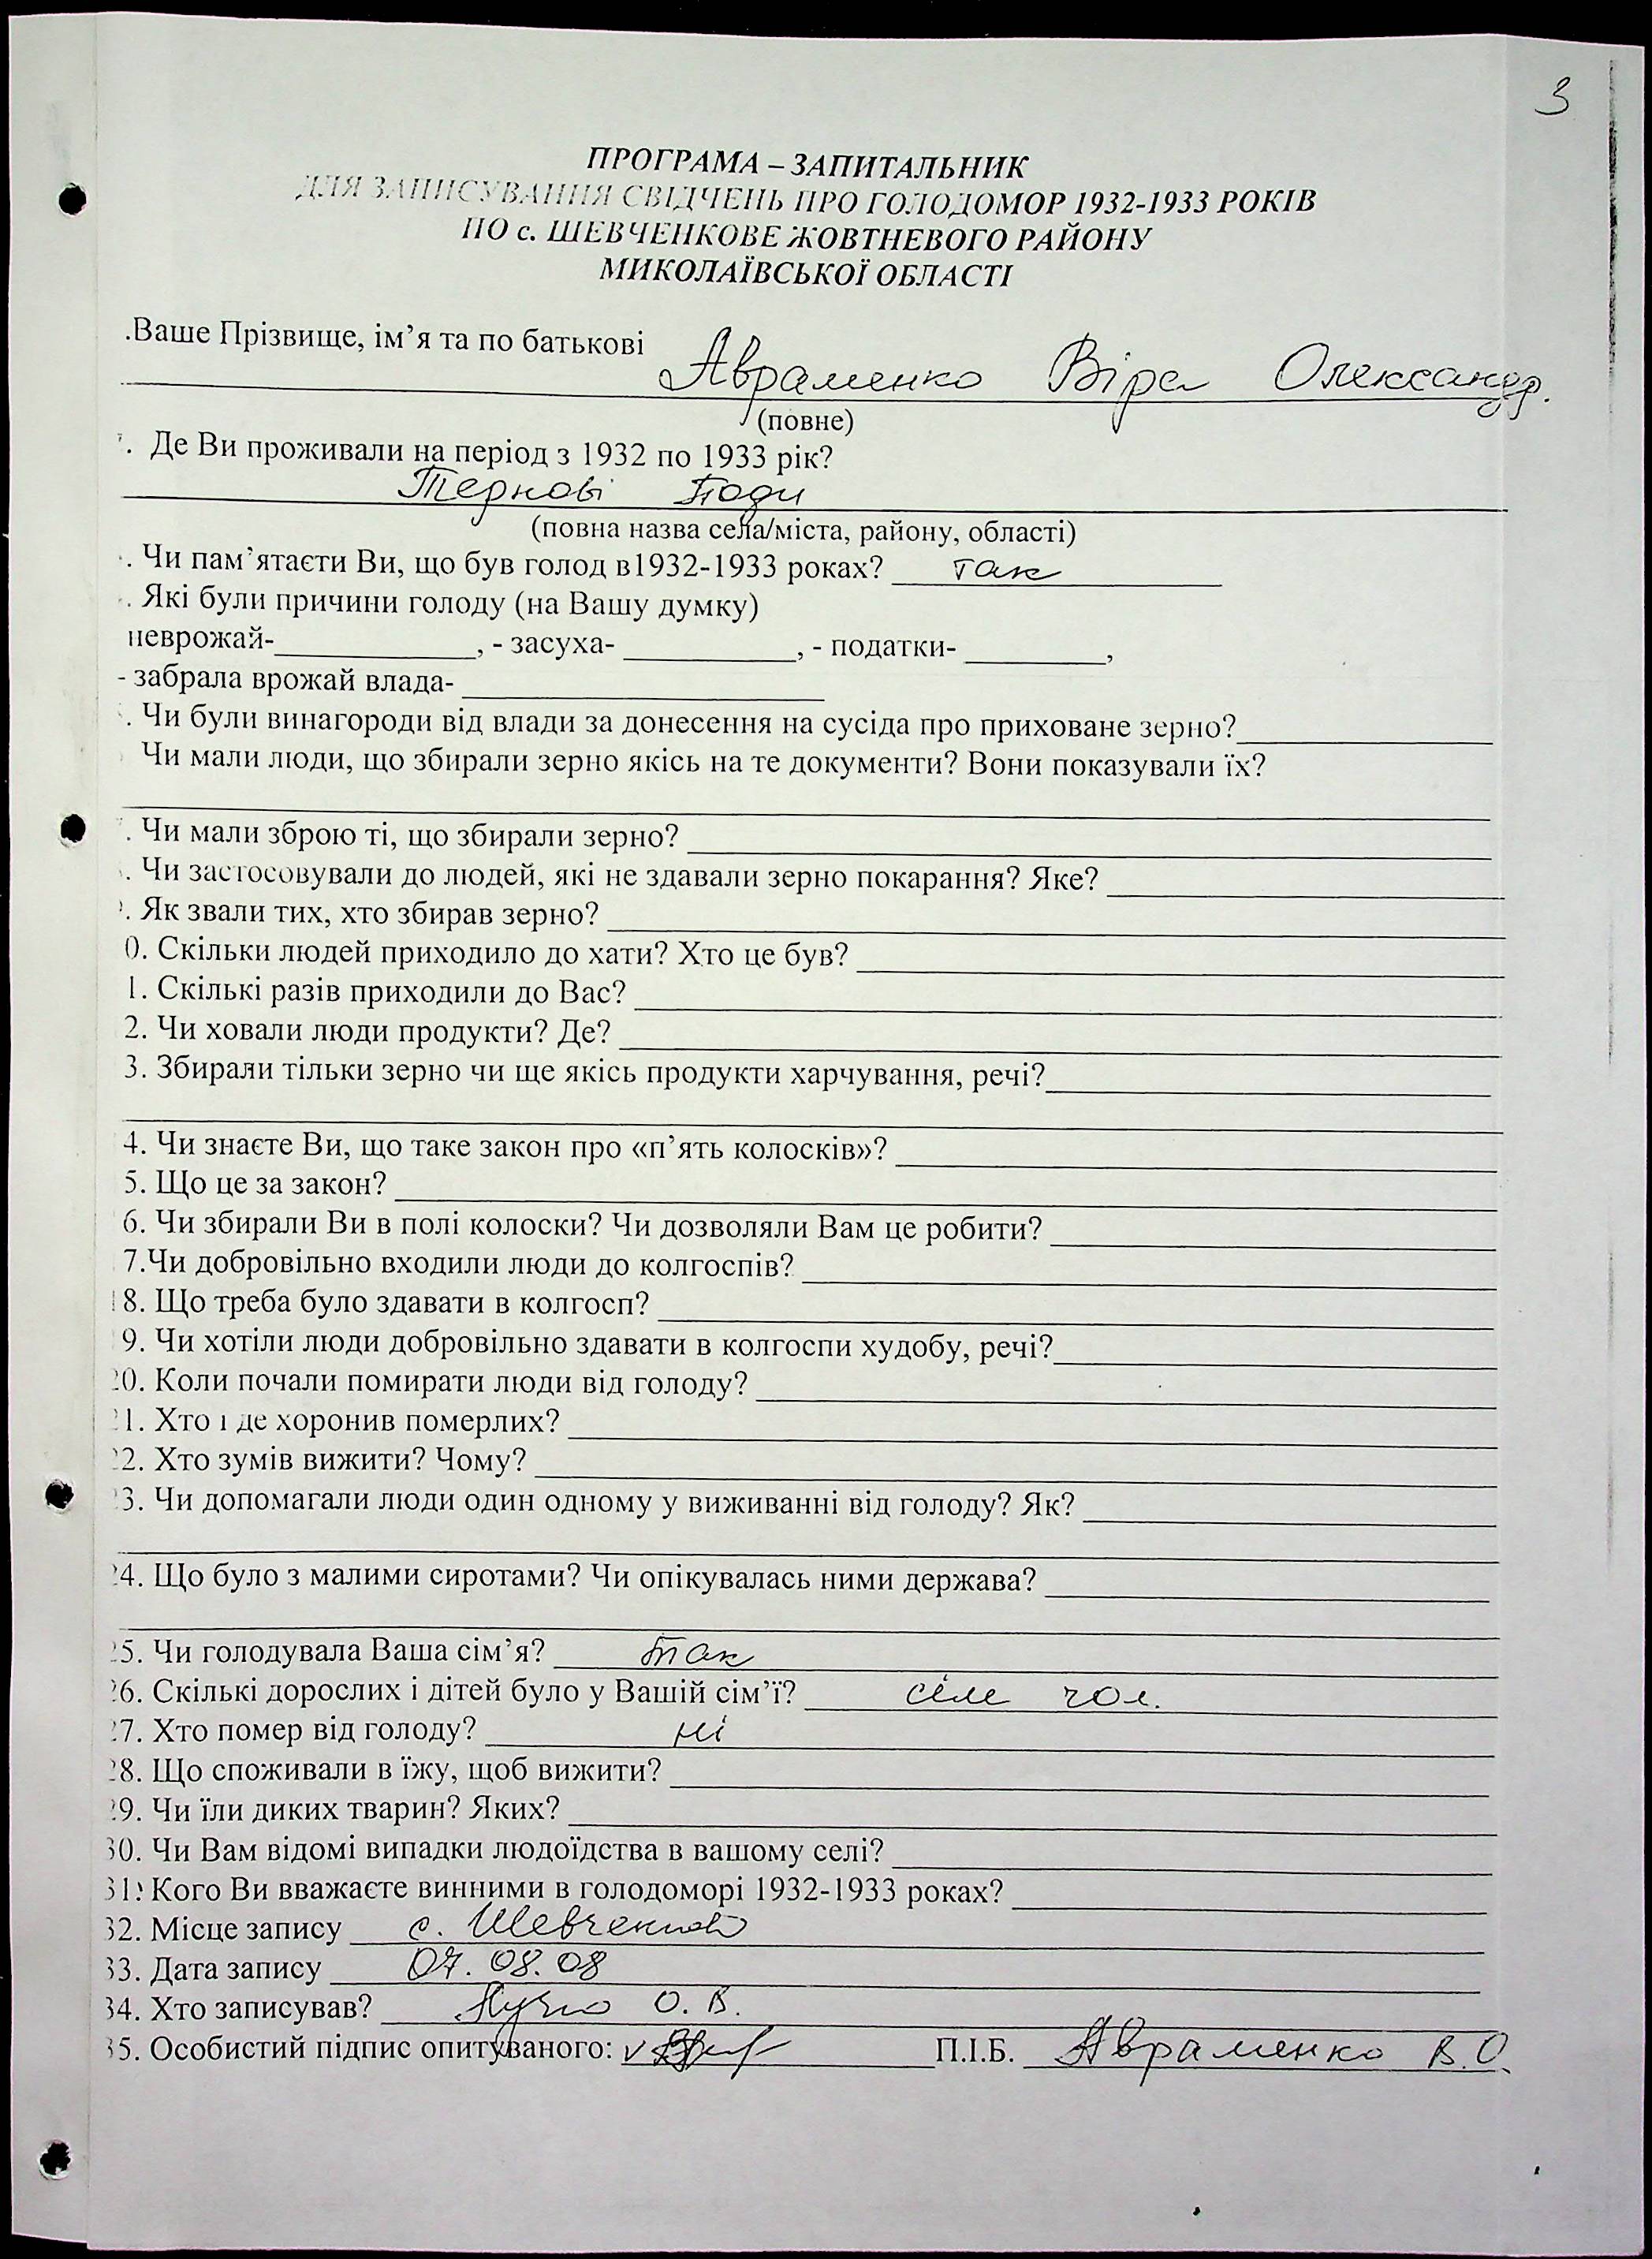 3
ПРОГРАМА – ЗАПИТАЛЬНИК
ДЛЯ ЗАПИСУВАННЯ СВІДЧЕНЬ ПРО ГОЛОДОМОР 1932-1933 РОКІВ
ПО с. ШЕВЧЕНКОВЕ ЖОВТНЕВОГО РАЙОНУ
МИКОЛАЇВСЬКОЇ ОБЛАСТІ
.Ваше Прізвище, ім’я та по батькові
Авраменко Віра Олександр.
(повне)
. Де Ви проживали на період з 1932 по 1933 рік?
Тернові Поди
(повна назва села/міста, району, області)
. Чи пам’ятаєти Ви, що був голод в1932-1933 роках? так
. Які були причини голоду (на Вашу думку)
неврожай-____________, - засуха- __________, - податки- ________,
- забрала врожай влада- ____________
. Чи були винагороди від влади за донесення на сусіда про приховане зерно?____________
Чи мали люди, що збирали зерно якісь на те документи? Вони показували їх?
. Чи мали зброю ті, що збирали зерно? ____________
. Чи застосовували до людей, які не здавали зерно покарання? Яке? ____________
. Як звали тих, хто збирав зерно? ____________
0. Скільки людей приходило до хати? Хто це був? ____________
1. Скількі разів приходили до Вас? ____________
2. Чи ховали люди продукти? Де? ____________
3. Збирали тільки зерно чи ще якісь продукти харчування, речі?____________
4. Чи знаєте Ви, що таке закон про «п’ять колосків»? ____________
5. Що це за закон? ____________
6. Чи збирали Ви в полі колоски? Чи дозволяли Вам це робити? ____________
7.Чи добровільно входили люди до колгоспів? ____________
18. Що треба було здавати в колгосп? ____________
9. Чи хотіли люди добровільно здавати в колгоспи худобу, речі?____________
20. Коли почали помирати люди від голоду? ____________
21. Хто і де хоронив померлих? ____________
22. Хто зумів вижити? Чому? ____________
23. Чи допомагали люди один одному у виживанні від голоду? Як? ____________
24. Що було з малими сиротами? Чи опікувалась ними держава? ____________
25. Чи голодувала Ваша сім’я? так
26. Скількі дорослих і дітей було у Вашій сім’ї? сім чол.
27. Хто помер від голоду? ні
28. Що споживали в їжу, щоб вижити? ____________
29. Чи їли диких тварин? Яких? ____________
30. Чи Вам відомі випадки людоїдства в вашому селі? ____________
31. Кого Ви вважаєте винними в голодоморі 1932-1933 роках? ____________
32. Місце запису с. Шевченково
33. Дата запису 07.08.08
34. Хто записував? О. В.
35. Особистий підпис опитуваного: v П.І.Б. Авраменко В.О.